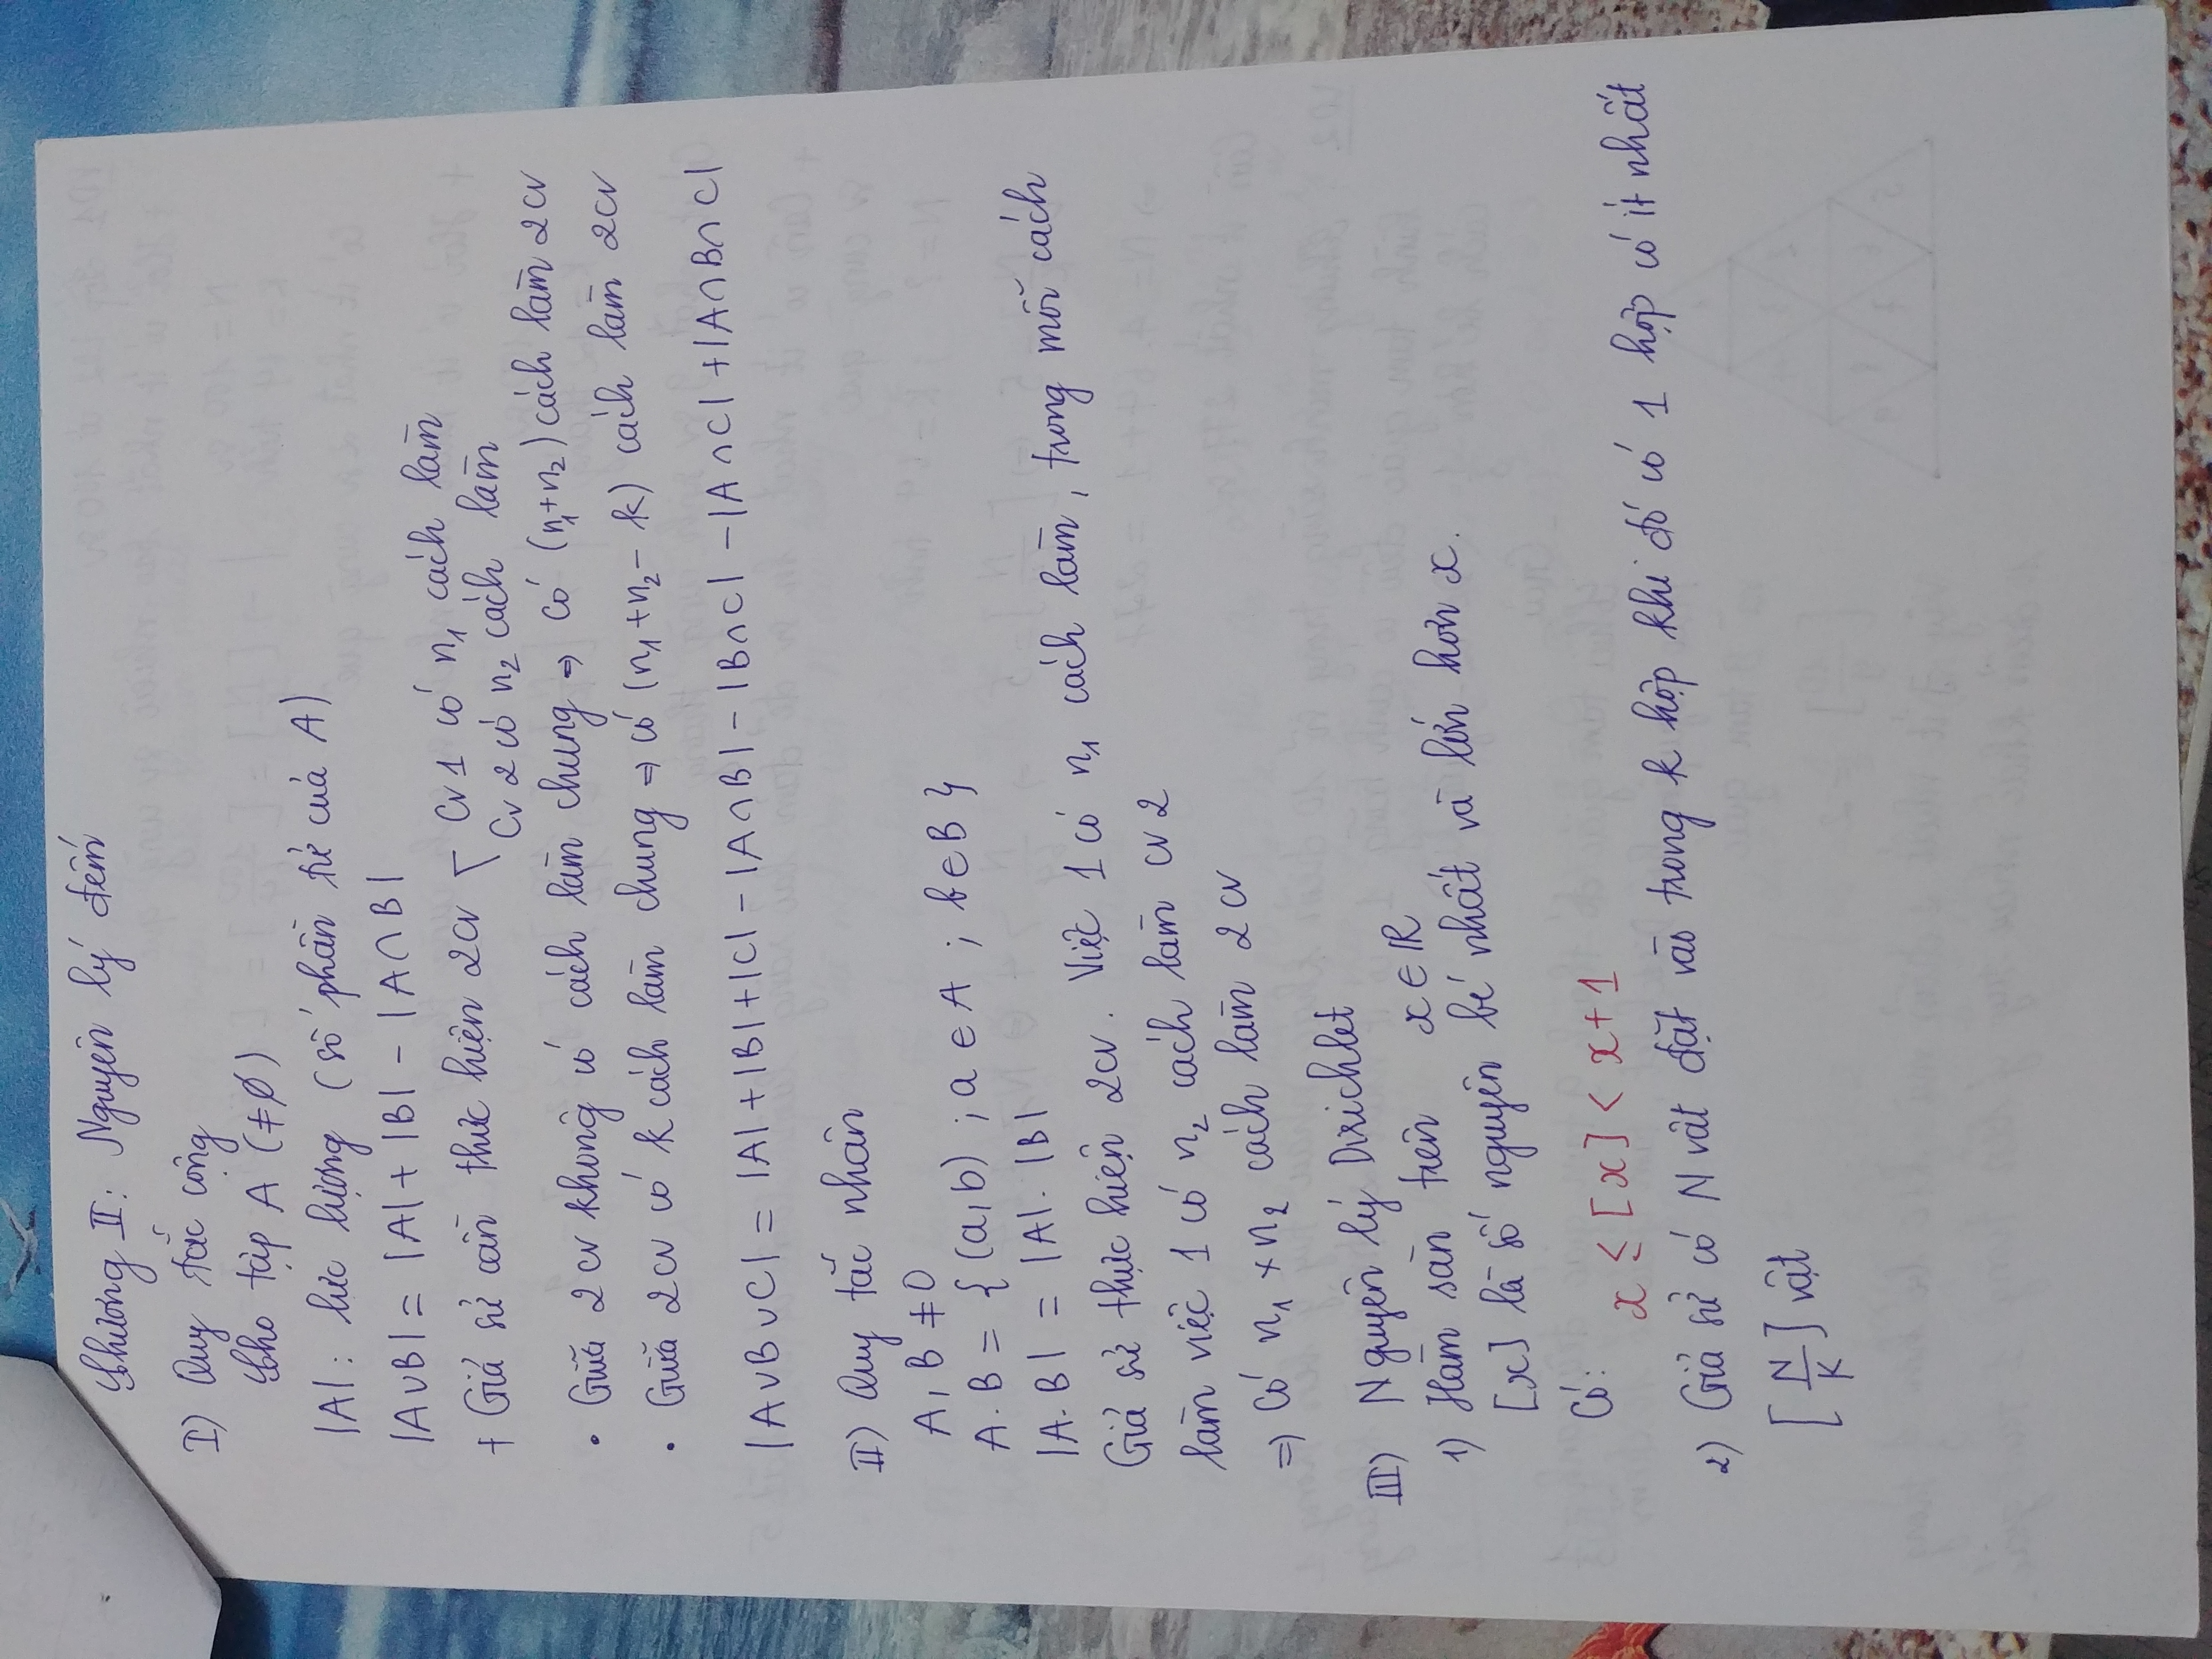 Chương II: Nguyên lý đếm
I) Quy tắc cộng
Cho tập A (≠∅)
|A|: lực lượng (số phần tử của A)
|A∪B| = |A| + |B| - |A∩B|
+ Giả sử cần thực hiện 2cv
Cv 1 có n₁ cách làm
Cv 2 có n₂ cách làm
• Giữa 2 cv không có cách làm chung ⇒ có (n₁+n₂) cách làm 2cv
• Giữa 2cv có k cách làm chung ⇒ có (n₁+n₂- k) cách làm 2cv
|A∪B∪C| = |A| + |B| + |C| - |A∩B| - |B∩C| - |A∩C| + |A∩B∩C|
II) Quy tắc nhân
A, B ≠ 0
A.B = {(a,b) ; a ∈ A ; b ∈ B}
|A.B| = |A|. |B|
Giả sử thực hiện 2cv. Việc 1 có n₁ cách làm, trong mỗi cách
làm việc 1 có n₂ cách làm cv 2
⇒ Có n₁ × n₂ cách làm 2 cv
III) Nguyên lý Dirichlet
1) Hàm sàn trên x ∈ ℝ
[x] là số nguyên bé nhất và lớn hơn x.
Có: x ≤ [x] < x + 1
2) Giả sử có N vật đặt vào trong k hộp khi đó có 1 hộp có ít nhất
[N/K] vật